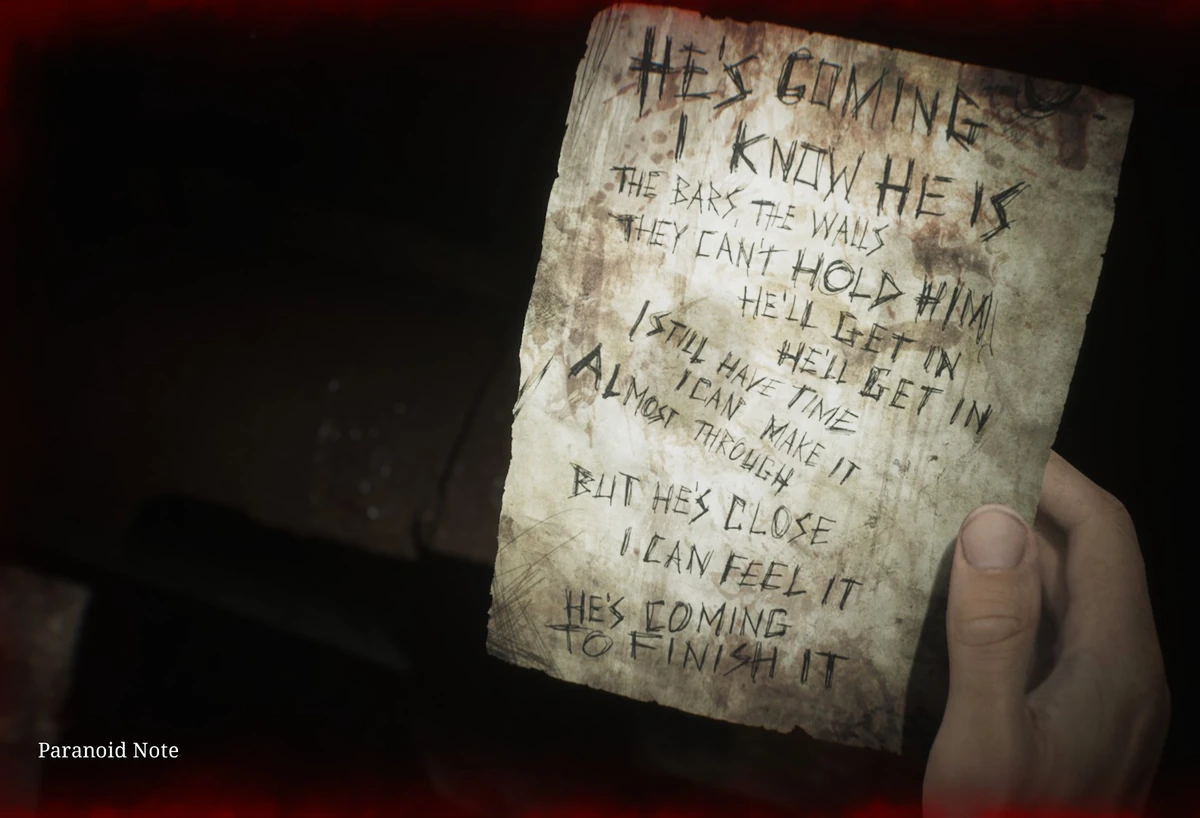 HE'S COMING
I KNOW HE IS
THE BARS, THE WALLS
THEY CAN'T HOLD HIM
HE'LL GET IN
HE'LL GET IN
I STILL HAVE TIME
I CAN MAKE IT
ALMOST THROUGH
BUT HE'S CLOSE
I CAN FEEL IT
HE'S COMING
TO FINISH IT
Paranoid Note